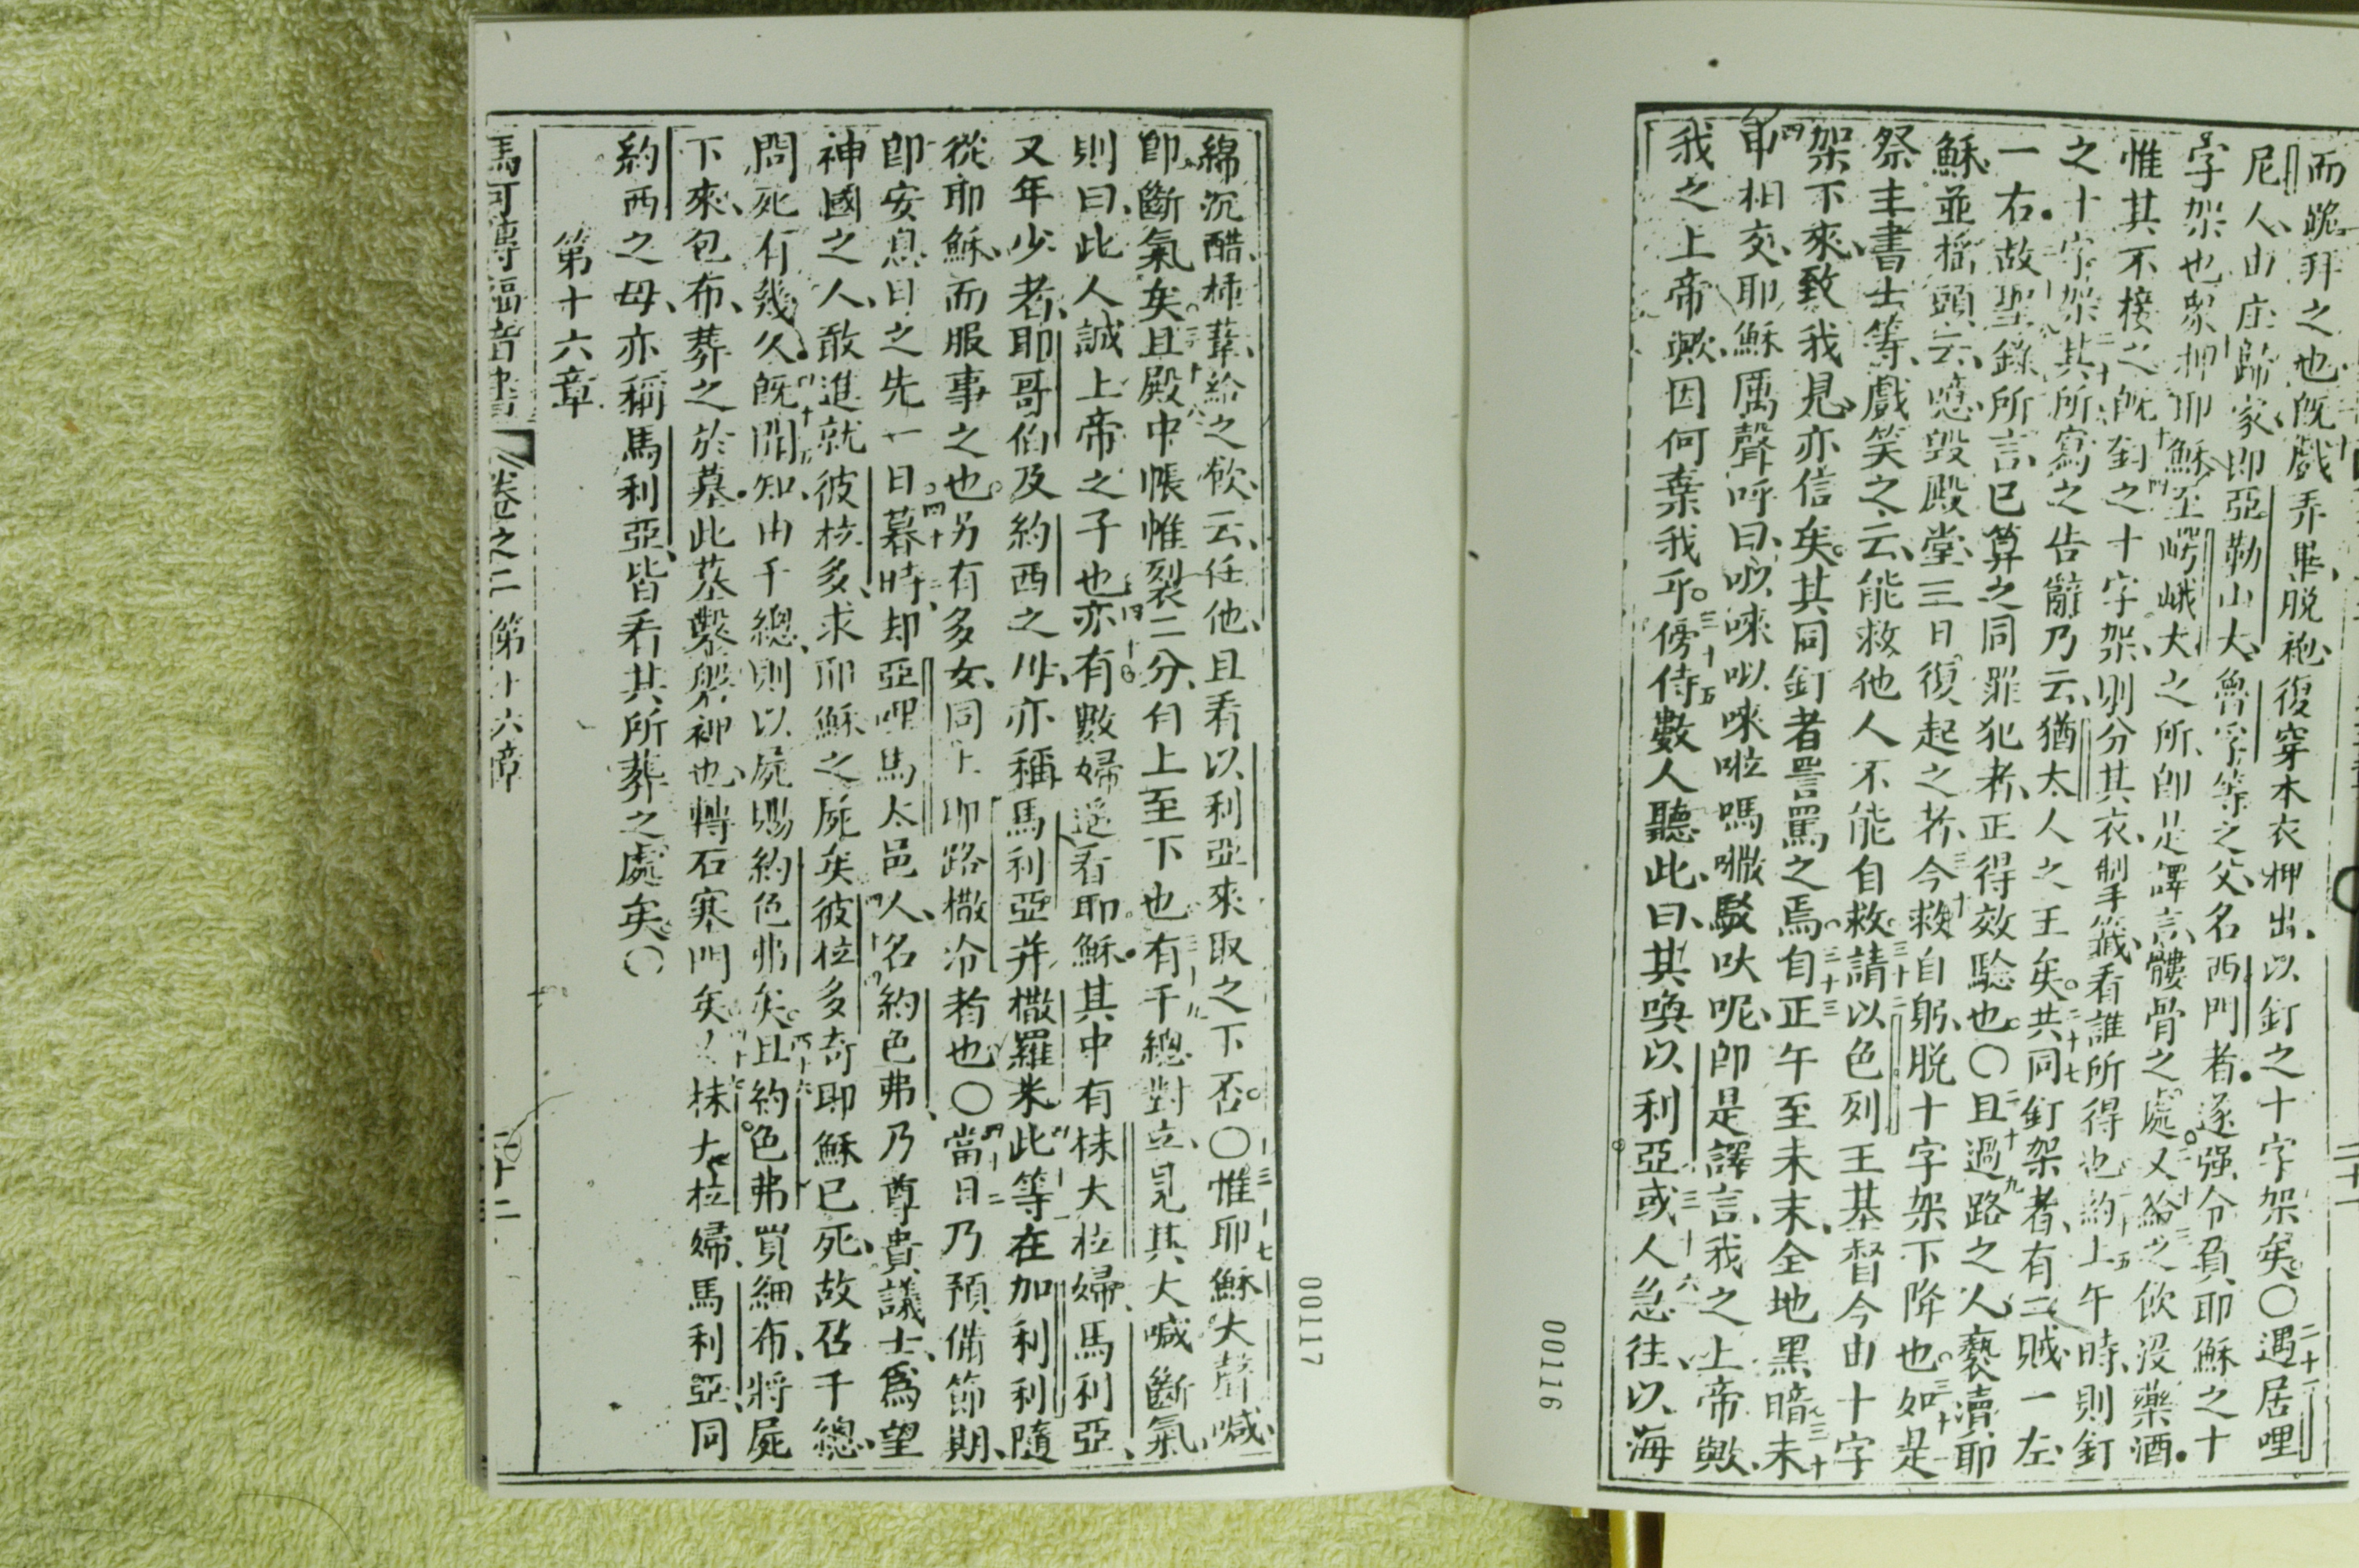 而跪拜之也既戲弄畢脱袍復穿本衣押出以釘之十字架矣〇遇居哩
尼人由庄歸家即亞勒山大魯孚等之父名西門者遂强令負耶穌之十
字架也衆押耶穌至㟧峨大之所即是譯言髏骨之處又給之飲没藥酒
惟其不接之既釘之十字架則分其衣掣籤看誰所得也約上午時則釘
之十字架其所寫之告辭乃云猶太人之王矣共同釘架者有二賊一左
一右故聖錄所言已算之同罪犯者正得效驗也〇且過路之人褻瀆耶
穌並摇頭云噫毁殿堂三日復起之者今救自躬脱十字架下降也如是
祭主書士等戲笑之云能救他人不能自救請以色列王基督今由十字
架下來致我見亦信矣其同釘者詈罵之焉自正午至未末全地黑暗未
申相交耶穌厲聲呼曰㕥唻㕥唻啦嗎㘔駁吠呢即是譯言我之上帝歟
我之上帝歟因何棄我乎傍侍數人聽此曰其喚以利亞或人急往以海
00116
綿沉醋棒葦給之飲云任他且看以利亞來取之下否〇惟耶穌大聲喊
即斷氣矣且殿中帳惟裂二分自上至下也有千總對立見其大喊斷氣
則曰此人誠上帝之子也亦有數婦遥看耶穌其中有抹大拉婦馬利亞
又年少者耶哥伯及約西之母亦稱馬利亞并撒羅米此等在加利利隨
從耶穌而服事之也另有多女同上耶路撒冷者也〇當日乃預備節期
即安息日之先一日暮時却亞哩馬太邑人名約色弗乃尊貴議士爲望
神國之人敢進就彼拉多求耶穌之屍矣彼拉多奇耶穌已死故召千總
問死有幾久既聞知由千總則以屍賜約色弗矣且約色弗買細布將屍
下來包布葬之於墓此墓鑿磐裡也轉石塞門矣抹大拉婦馬利亞同
約西之母亦稱馬利亞皆看其所葬之處矣〇
第十六章
馬可傳福音書 卷之二第十六章
00117